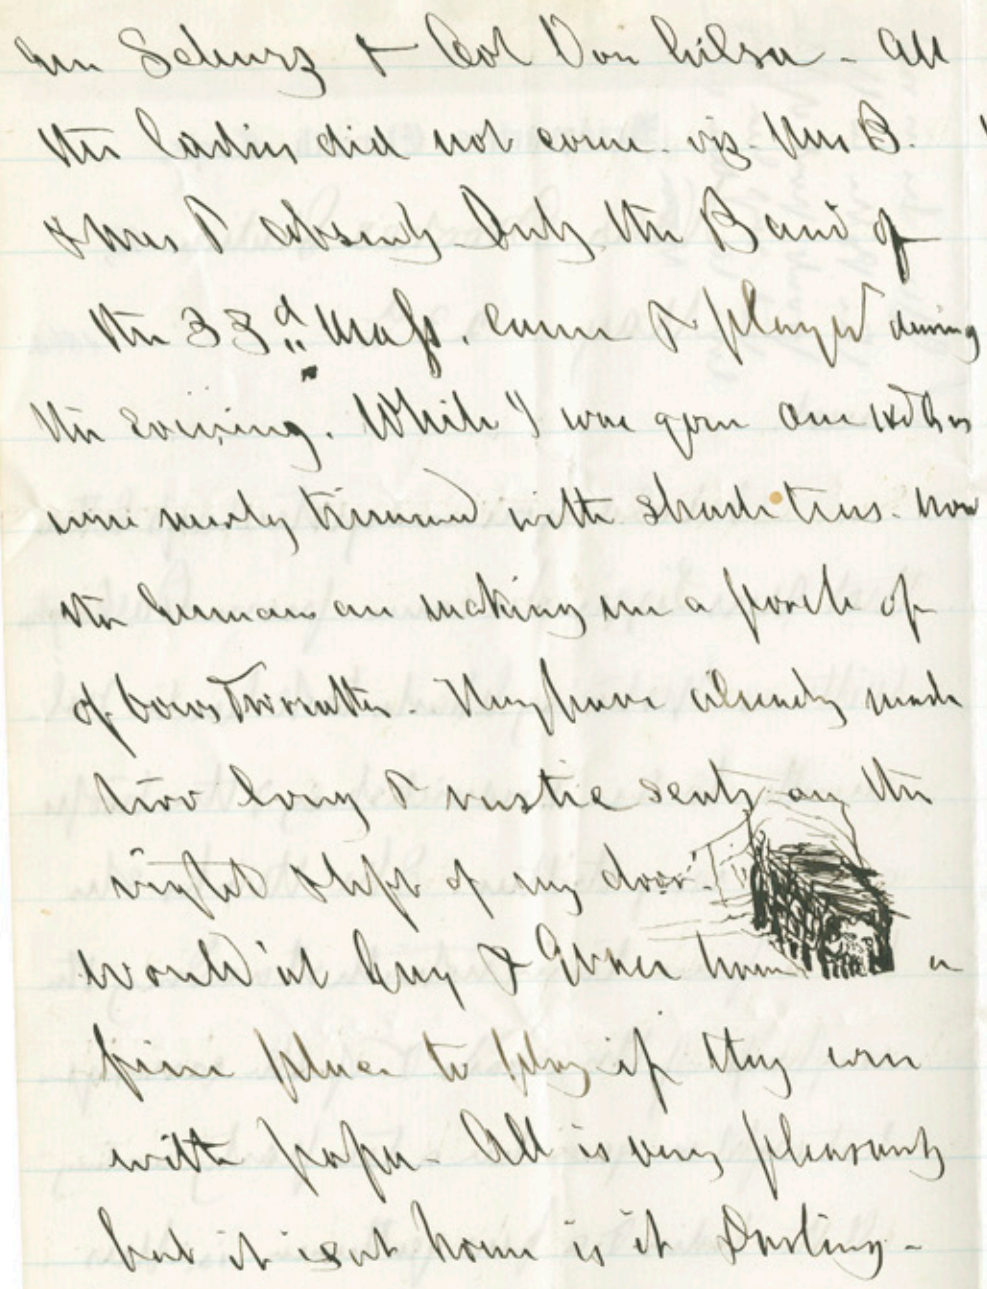 Gen Schurz & Col Von Gilsa - All
the ladies did not come. viz. Mrs B.
& Mrs P absent. Only the Band of
the 33d Mass. came & played during
the evening. While I was gone our Hd Qrs
were newly trimmed with shade trees. now
the Germans are making me a porch of
of bows & wreaths. They have already made
two long & rustic seats on the
right & left of my door.
Would'nt Guy & Grace have a
fine place to play if they were
with papa - All is very pleasant
but it isnt home is it Darling -